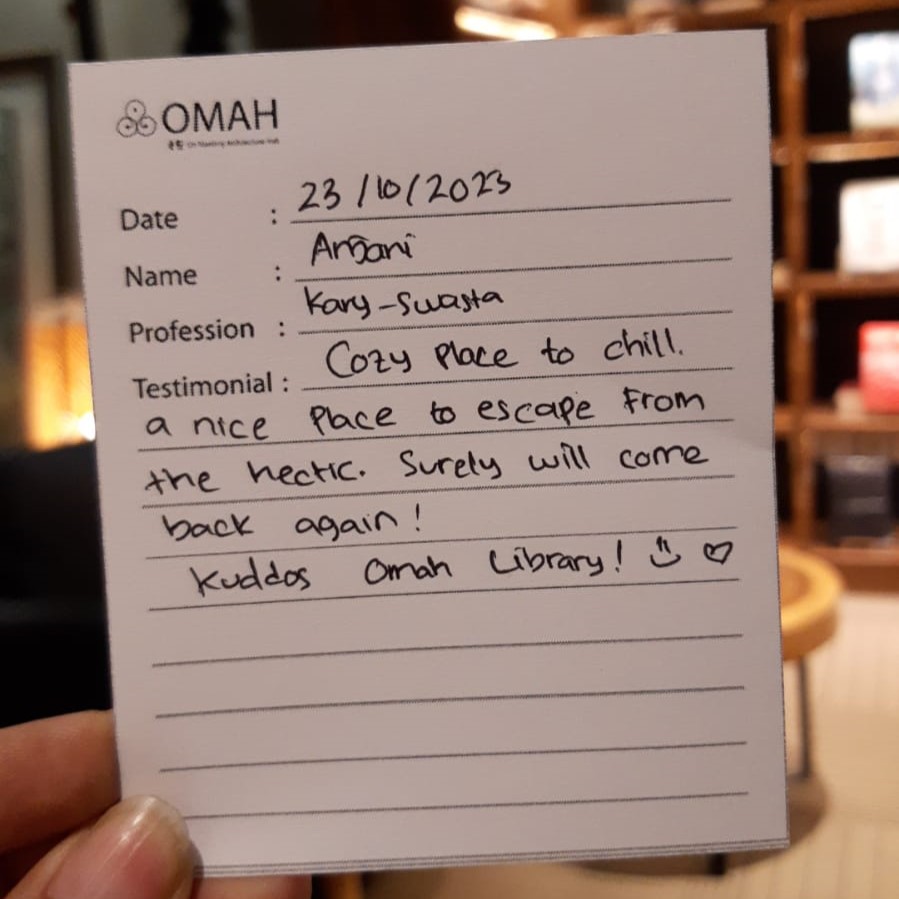 OMAH
Date : 23/10/2023
Name :
Profession : Kary-Swasta
Testimonial : Cozy Place to chill.
a nice Place to escape From
the hectic. Surely will come
back again!
Kuddos Omah Library!